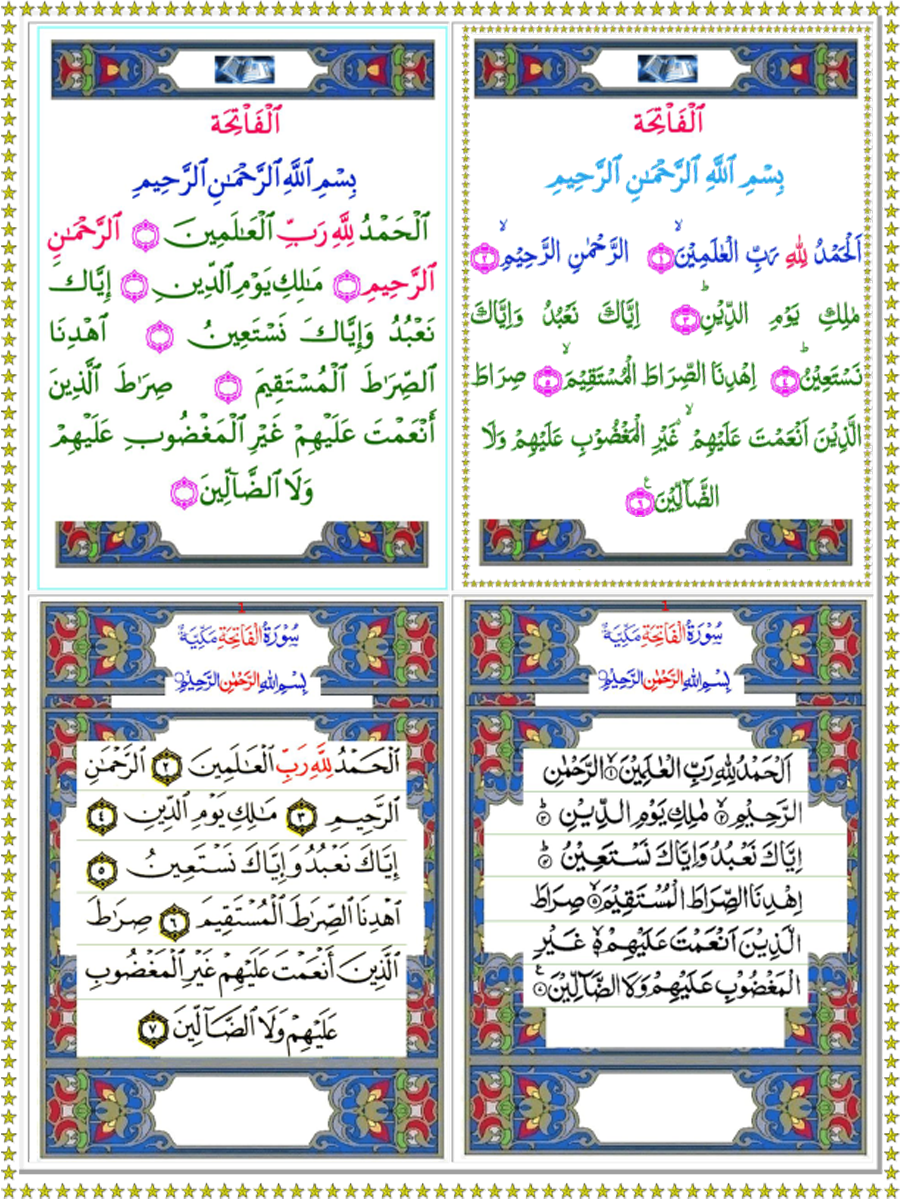 ٱلْفَاْتِحَة
بِسْمِ ٱللَّهِ ٱلرَّحْمَـٰنِ ٱلرَّحِيمِ
ٱلْحَمْدُ لِلَّهِ رَبِّ ٱلْعَـٰلَمِينَ ۝ ٱلرَّحْمَـٰنِ
ٱلرَّحِيمِ ۝ مَـٰلِكِ يَوْمِ ٱلدِّينِ ۝ إِيَّاكَ
نَعْبُدُ وَإِيَّاكَ نَسْتَعِينُ ۝ ٱهْدِنَا
ٱلصِّرَٰطَ ٱلْمُسْتَقِيمَ ۝ صِرَٰطَ ٱلَّذِينَ
أَنْعَمْتَ عَلَيْهِمْ غَيْرِ ٱلْمَغْضُوبِ عَلَيْهِمْ
وَلَا ٱلضَّآلِّينَ ۝
ٱلْفَاْتِحَة
بِسْمِ ٱللَّهِ ٱلرَّحْمَـٰنِ ٱلرَّحِيمِ
اَلْحَمْدُ لِلّٰهِ رَبِّ الْعٰلَمِيْنَۙ‏ ﴿۱﴾ الرَّحْمٰنِ الرَّحِيْمِۙ‏ ﴿۲﴾
مٰلِكِ يَوْمِ الدِّيْنِؕ‏ ﴿۳﴾ اِيَّاكَ نَعْبُدُ وَاِيَّاكَ
نَسْتَعِيْنُؕ‏ ﴿۴﴾ اِهْدِنَا الصِّرَاطَ الْمُسْتَقِيْمَۙ‏ ﴿۵﴾ صِرَاطَ
الَّذِيْنَ اَنْعَمْتَ عَلَيْهِمْ ۙ غَيْرِ الْمَغْضُوْبِ عَلَيْهِمْ وَلَا
الضَّآلِّيْنَ ﴿۶﴾
1
سُورَةُ الْفَاتِحَةِ مَكِّيَّةٌ
بِسْمِ اللهِ الرَّحْمٰنِ الرَّحِيْمِ
ٱلْحَمْدُ لِلَّهِ رَبِّ ٱلْعَـٰلَمِينَ ٢ ٱلرَّحْمَـٰنِ
ٱلرَّحِيمِ ٣ مَـٰلِكِ يَوْمِ ٱلدِّينِ ٤
إِيَّاكَ نَعْبُدُ وَإِيَّاكَ نَسْتَعِينُ ٥
ٱهْدِنَا ٱلصِّرَٰطَ ٱلْمُسْتَقِيمَ ٦ صِرَٰطَ
ٱلَّذِينَ أَنْعَمْتَ عَلَيْهِمْ غَيْرِ ٱلْمَغْضُوبِ
عَلَيْهِمْ وَلَا ٱلضَّآلِّينَ ٧
1
سُورَةُ الْفَاتِحَةِ مَكِّيَّةٌ
بِسْمِ اللهِ الرَّحْمٰنِ الرَّحِيْمِ
اَلْحَمْدُ لِلّٰهِ رَبِّ الْعٰلَمِيْنَ ۙ۱ الرَّحْمٰنِ
الرَّحِيْمِ ۙ۲ مٰلِكِ يَوْمِ الدِّيْنِ ؕ۳
اِيَّاكَ نَعْبُدُ وَاِيَّاكَ نَسْتَعِيْنُ ؕ۴
اِهْدِنَا الصِّرَاطَ الْمُسْتَقِيْمَ ۙ۵ صِرَاطَ
الَّذِيْنَ اَنْعَمْتَ عَلَيْهِمْ ۙ۬ غَيْرِ
الْمَغْضُوْبِ عَلَيْهِمْ وَلَا الضَّآلِّيْنَ